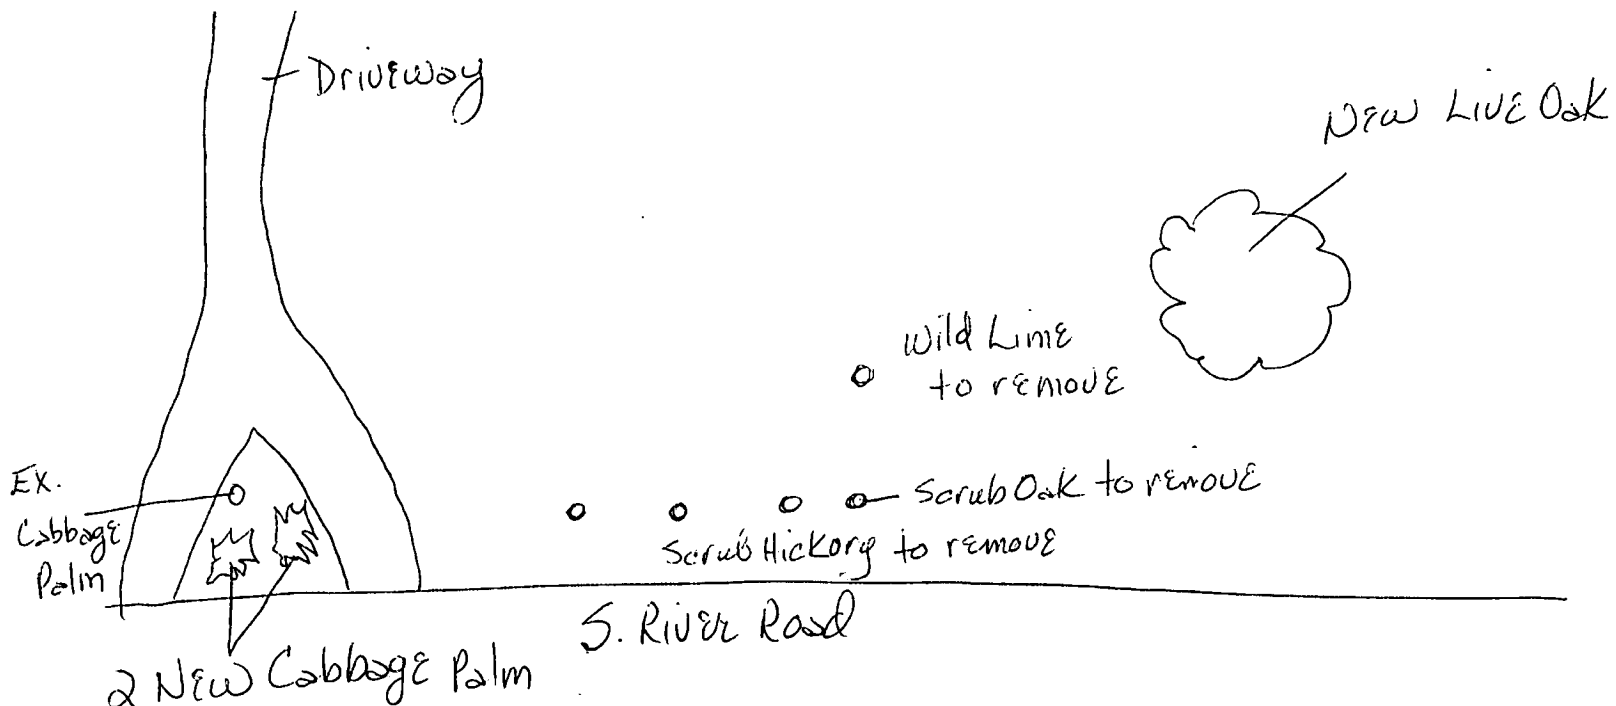 Driveway
New Live Oak
Wild Lime
to remove
Ex.
Cabbage
Palm
Scrub Oak to remove
Scrub Hickory to remove
S. River Road
2 New Cabbage Palm